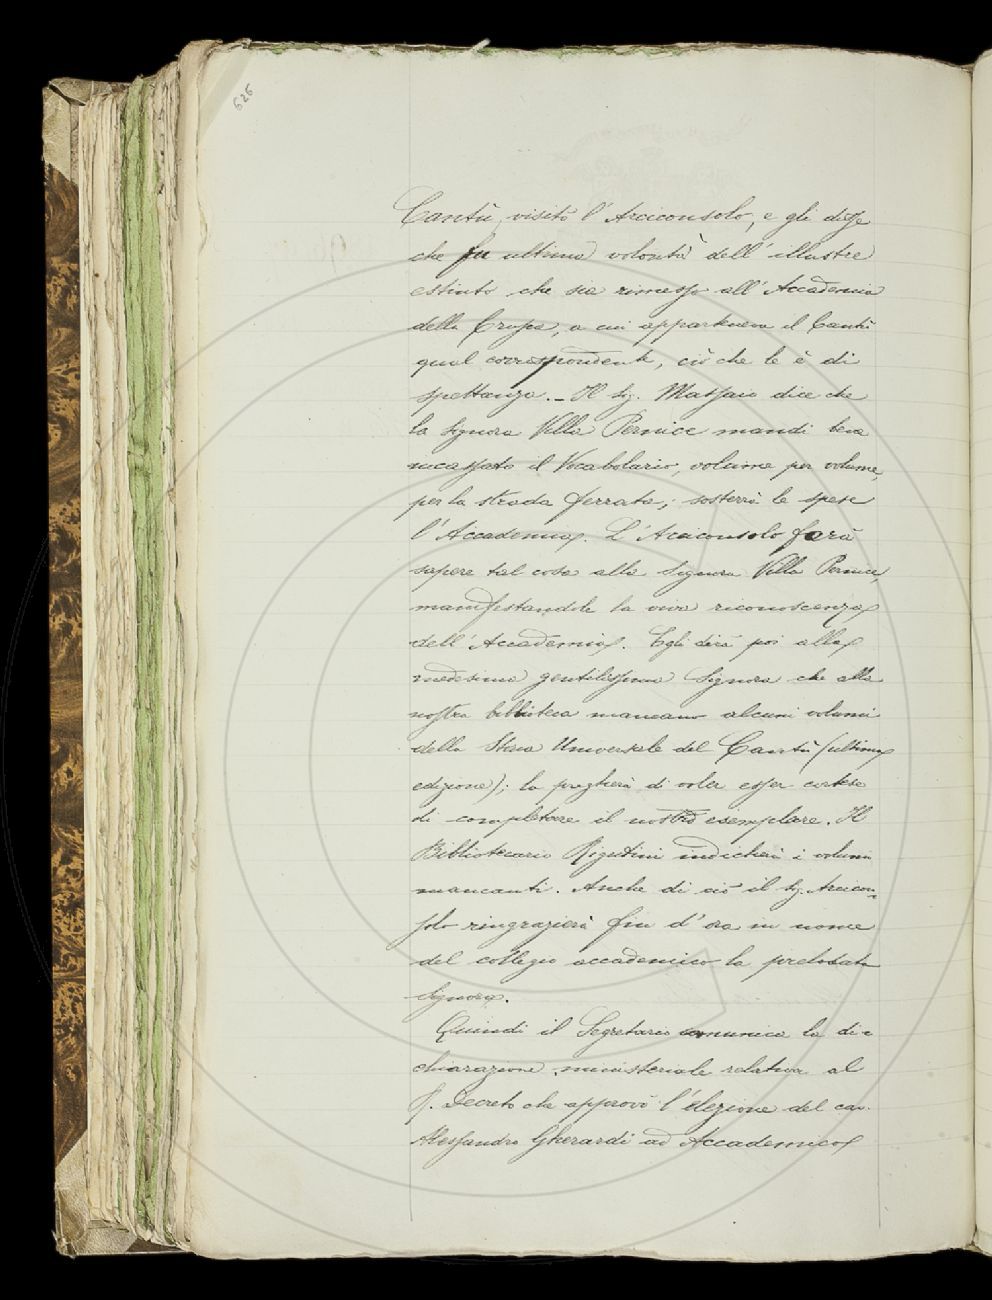 626
Cantù, visitò l'Arciconsolo, e gli disse
che fu ultima volontà dell'illustre
estinto che sia rimesso all'Accademia
della Crusca, a cui apparteneva il Cantù
qual corrispondente, ciò che le è di
spettanza. - Il Sig. Massaio dice che
la Signora Villa Pernice mandi bene
incassato il Vocabolario, volume per volume,
per la strada ferrata; sosterrà le spese
l'Accademia. L'Arciconsolo farà
sapere tal cosa alla Signora Villa Pernice,
manifestandole la viva riconoscenza
dell'Accademia. Egli dirà poi alla
medesima gentilissima Signora che alla
nostra biblioteca mancano alcuni volumi
della Storia Universale del Cantù (ultima
edizione); la pregherà di voler esser cortese
di completare il nostro esemplare. Il
Bibliotecario Rigutini indicherà i volumi
mancanti. Anche di ciò il Sig. Arcicon-
solo ringrazierà fin d'ora in nome
del collegio accademico la prelodata
Signora.
Quindi il Segretario comunica la di-
chiarazione ministeriale relativa al
R. Decreto che approvò l'elezione del cav.
Alessandro Gherardi ad Accademico